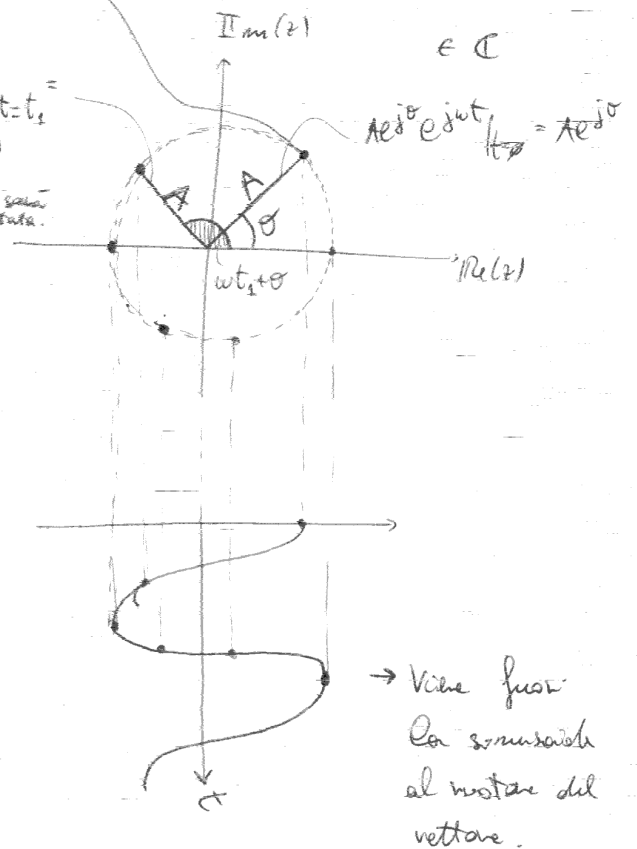 IIm(z)
∈ ℂ
t=t₁
=
Ae^{jθ} e^{jωt}|_{t=0} = Ae^{jθ}
sarà
A
A
θ
ωt₁+θ
Re(z)
→ Viene fuori
la sinusoide
al ruotare del
vettore.
t